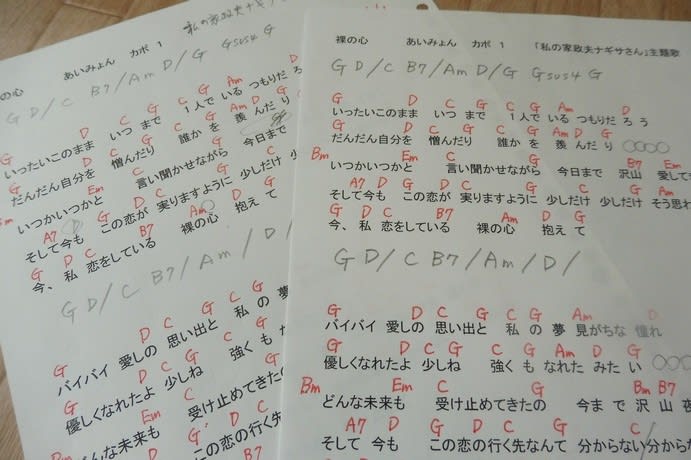 私の家政夫ナギ
の心 あいみょん カポ 1
G D / C B7 / Am D / G Gsus4 G
G D C G C G Am D
いったいこのまま いつ まで 1人で いる つもりだ ろ
G D C G C G Am D G
だんだん自分を 憎んだり 誰か を 羨 んだ り
Bm Em C G
いつかいつかと 言い聞かせながら 今日まで
A7 D G C G
そして今も この恋が 実りますように 少しだけ 少
G D C B7 Am
今、私 恋をしている 裸の心 抱えて
G D / C B7 / Am / D /
G D C G C G
バイバイ 愛しの 思い出と 私 の 夢
G D C G C G
優しくなれたよ 少しね 強く も な
Bm Em C G
どんな未来も 受け止めてきたの
A7 D G C
そして 今も この恋の行く先
裸の心 あいみょん カポ 1 「私の家政夫ナギサさん」主題歌
G D / C B7 / Am D / G Gsus4 G
G D C G C G Am D
いったいこのまま いつ まで 1人で いる つもりだ ろ う
G D C G C G Am D G
だんだん自分を 憎んだ り 誰か を 羨 んだ り 〇〇〇〇
Bm Em C G B7 Em
いつかいつかと 言い聞かせながら 今日まで 沢山 愛して
A7 D G C G C G
そして今も この恋が 実りますように 少しだけ 少しだけ そう思わ
G D C B7 Am D G
今、私 恋をしている 裸の心 抱え て
G D / C B7 / Am / D /
G D C G C G Am D
バイバイ 愛しの 思い出と 私 の 夢 見がちな 憧れ
G D C G C G Am D G
優しくなれたよ 少しね 強く も なれた みた い 〇〇〇
Bm Em C G Bm B7
どんな未来も 受け止めてきたの 今ま で 沢 山 夜
A7 D G C G C
そして 今も この恋の行く先なんて 分からない 分か